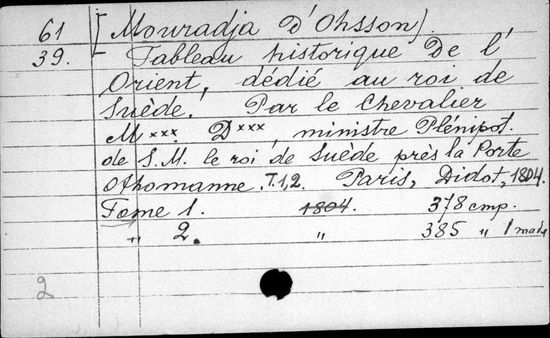 61 [Mouradja D'Ohsson].
39. Tableau historique De l'
Orient, dédié au roi de
Suède. Par le Chevalier
M*** D***, ministre Plénipot.
de S. M. le roi de Suède près la Porte
Othomanne. T.1,2. Paris, Didot, 1804.
Tome 1. 1804. 378 стр.
„ 2. „ 385 „ 1
2